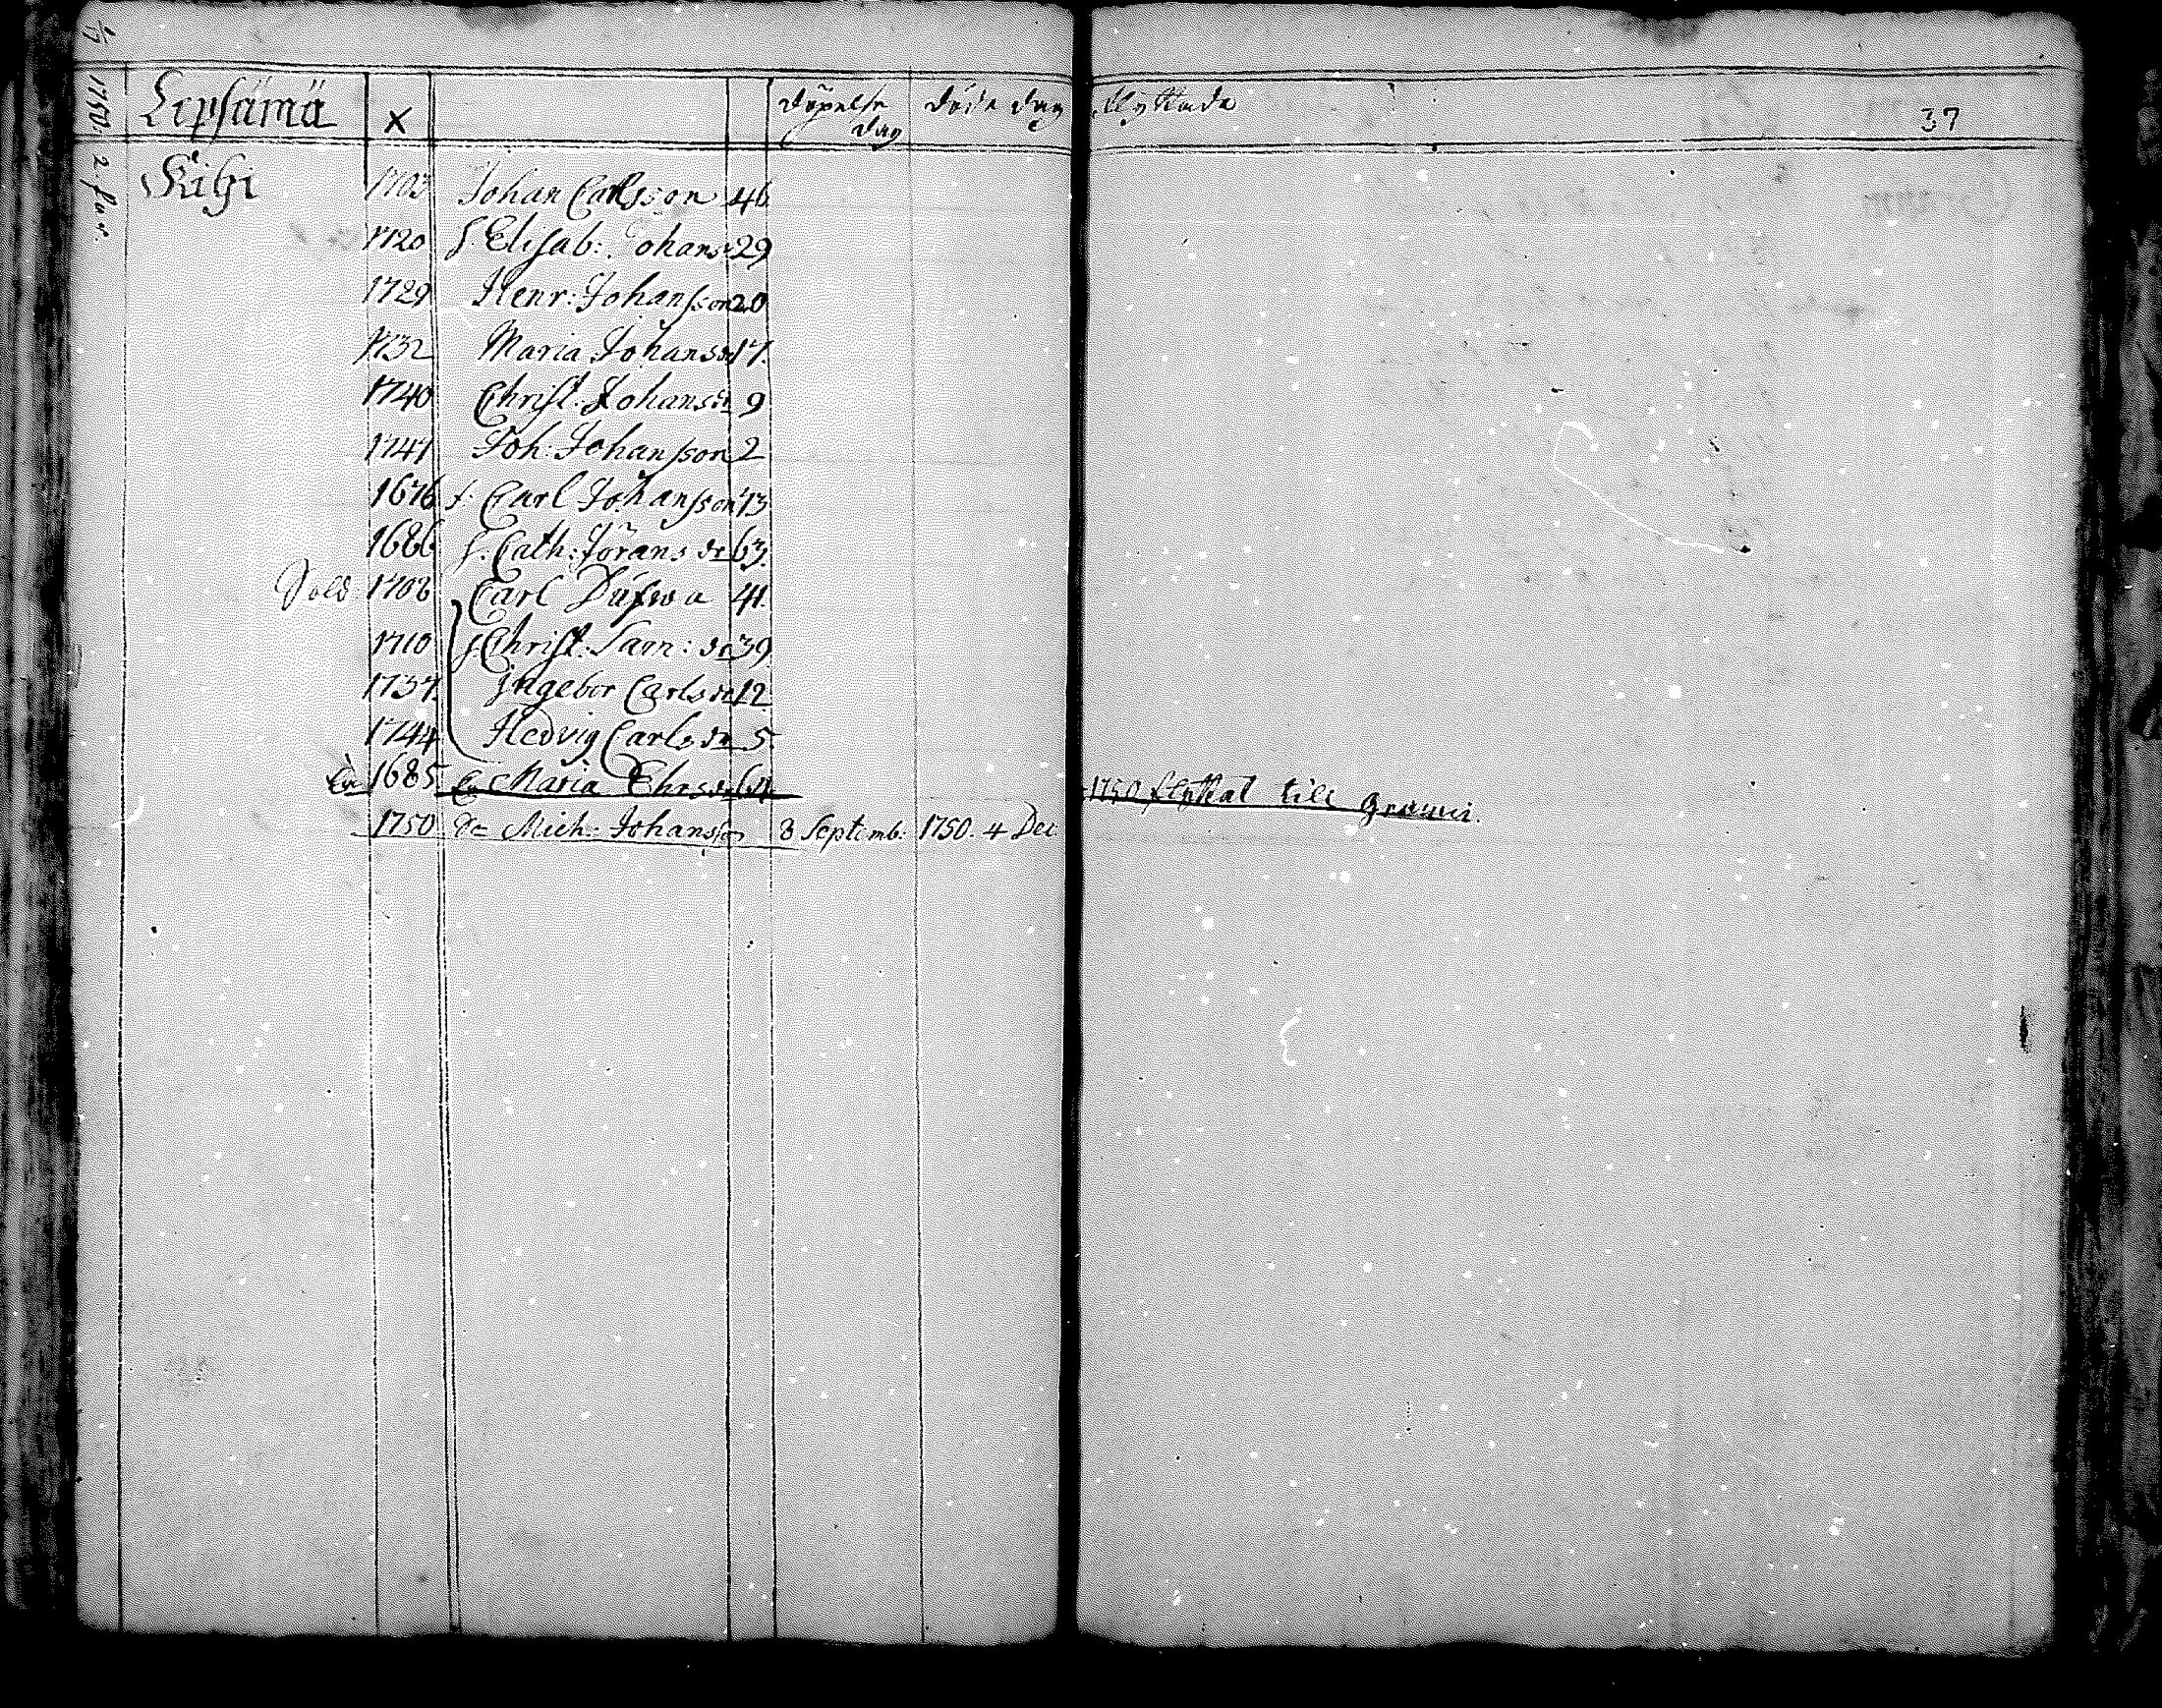 Lepsämä X Döpelse dag Döde dag flyttade 37
1750. 2. par.
Kihi 1703 Johan Carlsson 46
1720 h. Elisab: Johansdr 29
1729 Henr: Johansson 20
1732 Maria Johansdr 17.
1740 Christ: Johansdr 9
1747 Joh: Johansson 2
1676 f. Carl Johansson 73
1686 h. Cath: Jörans dr 63.
Sold 1708 Carl Dufwa 41.
1710 h. Christ. Sam: dr 39
1737. Ingebor Carls dr 12
1744 Hedvig Carls dr 5.
Enk 1685 Maria Ehrsdr 64 1750 flyttat till
1750 Mich: Johansson 8 Septemb: 1750. 4 Dec